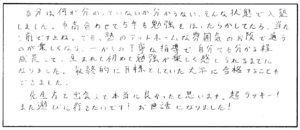 自分は何が分かっていないか分からない、そんな状態で入塾
しました。今高合わせても5年も勉強をほったらかしてたら、当た
り前ですよね。でも、塾のアットホームな雰囲気のお陰で通う
のが楽しくなり、一からの丁寧な指導で自分でも分かる程
成長して、生まれて初めて勉強が楽しく感じられるまでに
なりました。最終的に目標としていた大学に合格することも
できました。
先生方と出会えて本当に良かったと思います。超ラッキー!
また遊びに行きたいです! お世話になりました!